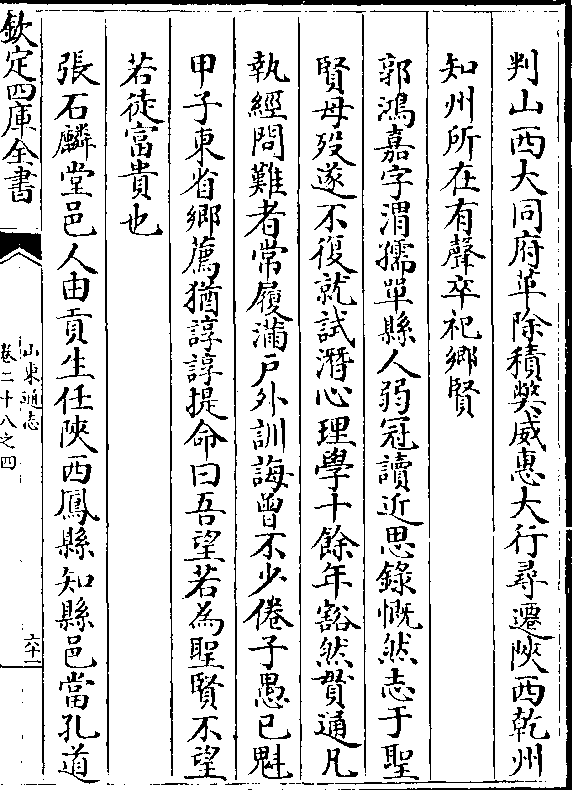 判山西大同府革除積獘威惠大行尋遷陜西乾州
知州所在有聲卒祀鄉賢
郭鴻嘉字渭孺單縣人弱冠讀近思錄慨然志于聖
賢母殁遂不復就試潛心理學十餘年豁然貫通凡
執經問難者常履滿戸外訓誨曽不少倦子愚已魁
甲子東省鄉薦猶諄諄提命曰吾望若為聖賢不望
若徒富貴也
張石麟堂邑人由貢生任陜西鳳縣知縣邑當孔道
欽定四庫全書
山東通志
卷二十八之四
六十二